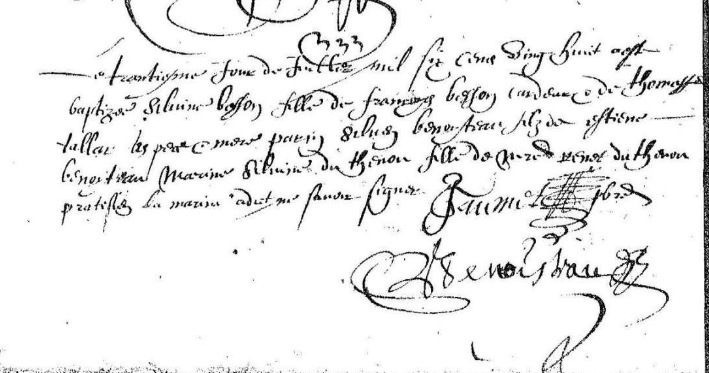 Le trantiesme Jour de Juillet mil six cens vingt huit a est
baptizee Silvine besson fille de francoys besson cardeur & de thomasse
tallat ses pere & mere parin Silvin benoisteau filz de estiene
benoisteau Marine Silvine du thenon fille de René du thenon
la marine a dict ne savoir signer
Jaumet pbre
S benoisteau